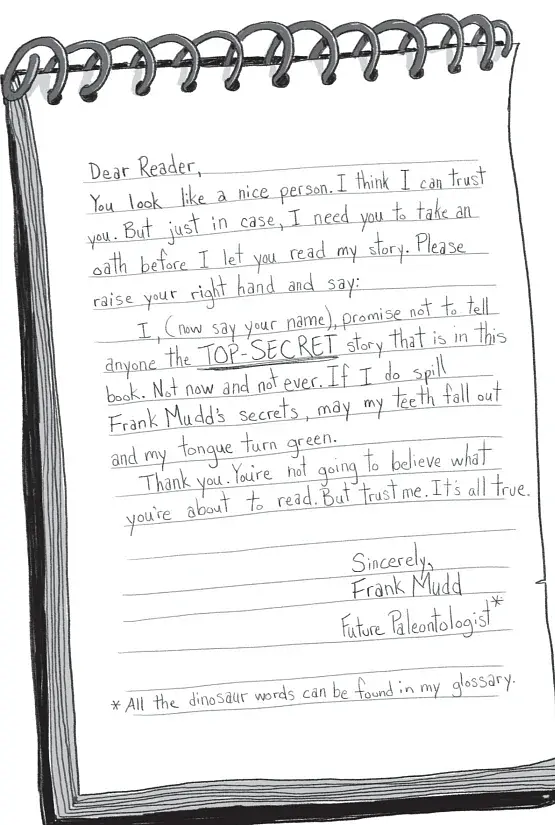 Dear Reader,
You look like a nice person. I think I can trust
you. But just in case, I need you to take an
oath before I let you read my story. Please
raise your right hand and say:
I, (now say your name), promise not to tell
anyone the TOP-SECRET story that is in this
book. Not now and not ever. If I do spill
Frank Mudd's secrets, may my teeth fall out
and my tongue turn green.
Thank you. You're not going to believe what
you're about to read. But trust me. It's all true.
Sincerely,
Frank Mudd
Future Paleontologist*
* All the dinosaur words can be found in my glossary.